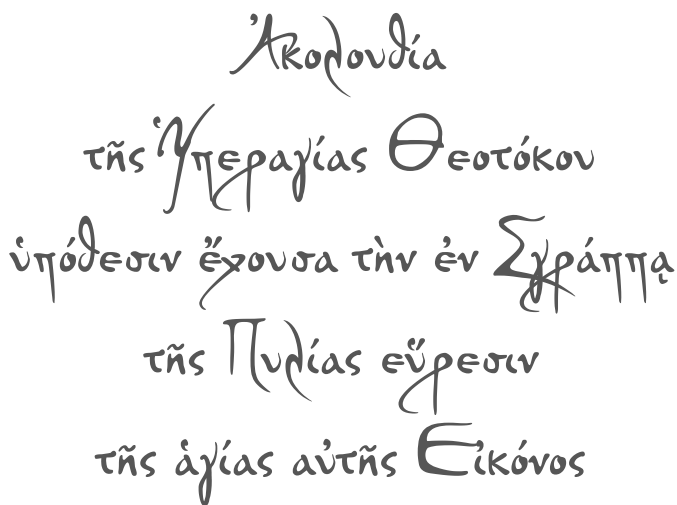 Ἀκολουθία
τῆς Ὑπεραγίας Θεοτόκου
ὑπόθεσιν ἔχουσα τὴν ἐν Σγράππᾳ
τῆς Πυλίας εὕρεσιν
τῆς ἁγίας αὐτῆς Εἰκόνος